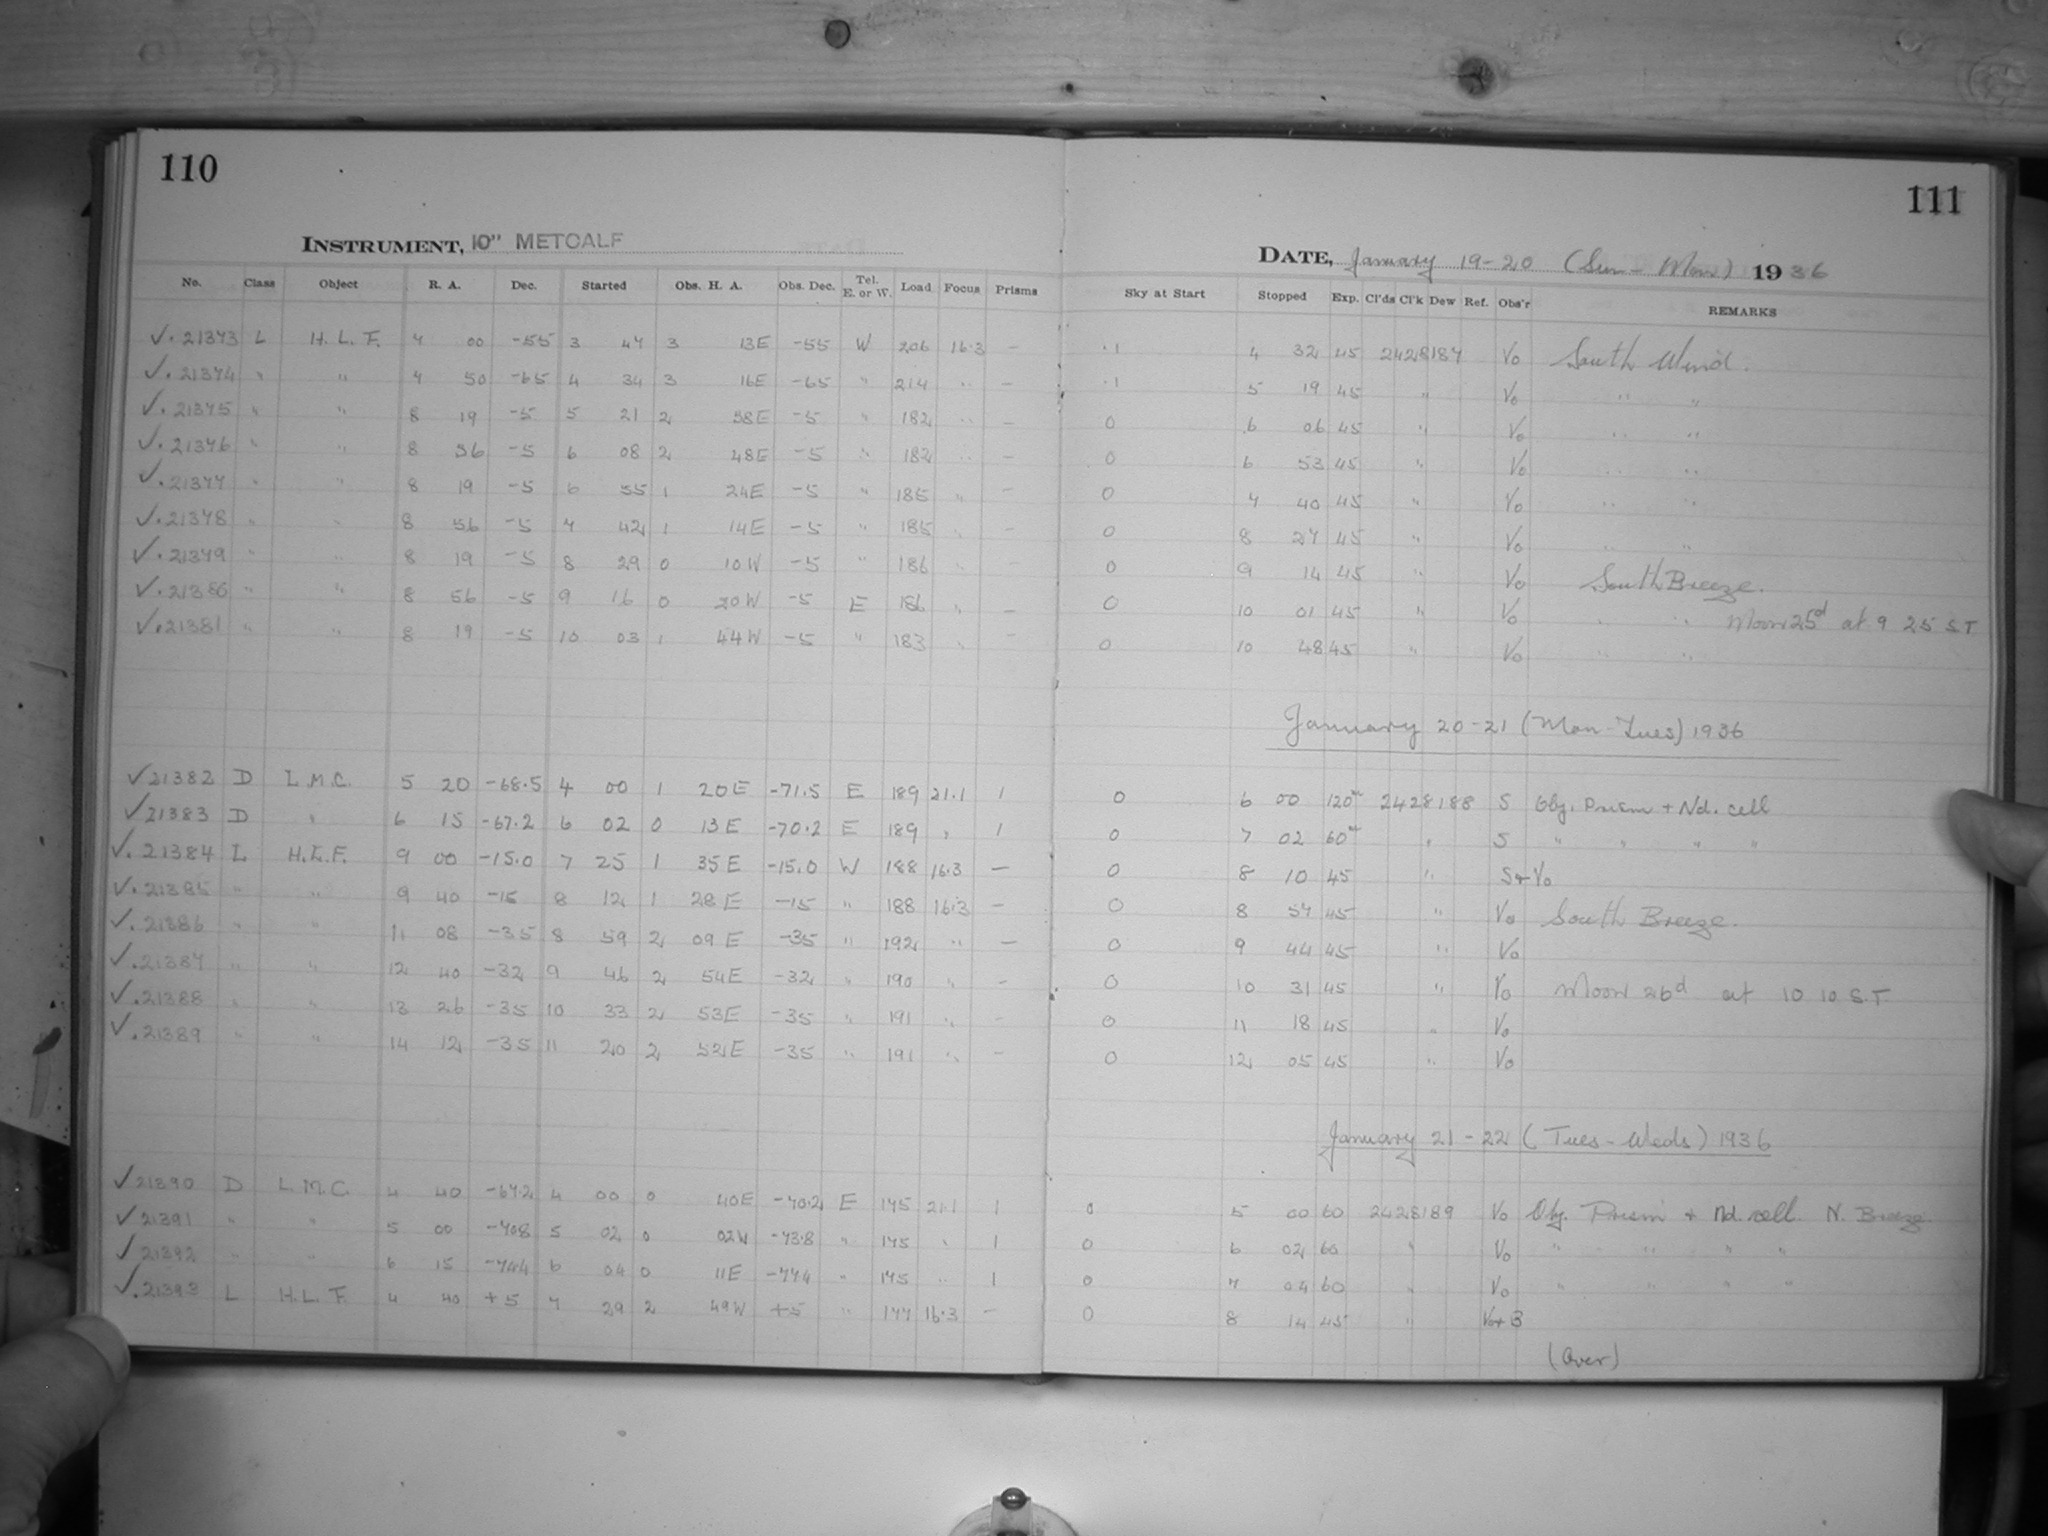 110
111
INSTRUMENT, 10" METCALF
DATE, January 19-20 (Sun - Mon) 1936
No. Class Object R. A. Dec. Started Obs. H. A. Obs. Dec. Tel. E. or W. Load Focus Prisms Sky at Start Stopped Exp. Cl'ds Cl'k Dew Ref. Obs'r REMARKS
✓. 21373 L H. L. F. 4 00 -55 3 47 3 13E -55 W 206 16.3 - .1 4 32 45 2428187 Vo South Wind.
✓. 21374 " " 4 50 -65 4 34 3 16E -65 " 214 " - .1 5 19 45 " Vo " "
✓. 21375 " " 8 19 -5 5 21 2 58E -5 " 182 " - 0 6 06 45 " Vo " "
✓. 21376 " " 8 56 -5 6 08 2 48E -5 " 182 " - 0 6 53 45 " Vo " "
✓. 21377 " " 8 19 -5 6 55 1 24E -5 " 185 " - 0 7 40 45 " Vo " "
✓. 21378 " " 8 56 -5 7 42 1 14E -5 " 185 " - 0 8 27 45 " Vo " "
✓. 21379 " " 8 19 -5 8 29 0 10W -5 " 186 " - 0 9 14 45 " Vo South Breeze.
✓. 21380 " " 8 56 -5 9 16 0 20W -5 E 186 " - 0 10 01 45 " Vo " " Moon 25d at 9 25 S.T
✓. 21381 " " 8 19 -5 10 03 1 44W -5 " 183 " - 0 10 48 45 " Vo " "
January 20-21 (Mon-Tues) 1936
✓ 21382 D L.M.C. 5 20 -68.5 4 00 1 20E -71.5 E 189 21.1 1 0 6 00 120m 2428188 S Obj. Prism + Nd. cell
✓ 21383 D " 6 15 -67.2 6 02 0 13E -70.2 E 189 " 1 0 7 02 60m " S " " " "
✓. 21384 L H.L.F. 9 00 -15.0 7 25 1 35E -15.0 W 188 16.3 - 0 8 10 45 " S+Vo
✓. 21385 " " 9 40 -15 8 12 1 28E -15 " 188 16.3 - 0 8 57 45 " Vo South Breeze.
✓. 21386 " " 11 08 -35 8 59 2 09E -35 " 192 " - 0 9 44 45 " Vo
✓. 21387 " " 12 40 -32 9 46 2 54E -32 " 190 " - 0 10 31 45 " Vo Moon 26d at 10 10 S.T.
✓. 21388 " " 13 26 -35 10 33 2 53E -35 " 191 " - 0 11 18 45 " Vo
✓. 21389 " " 14 12 -35 11 20 2 52E -35 " 191 " - 0 12 05 45 " Vo
January 21-22 (Tues-Weds) 1936
✓ 21390 D L.M.C. 4 40 -67.2 4 00 0 40E -70.2 E 175 21.1 1 0 5 00 60 2428189 Vo Obj. Prism + Nd. cell. N. Breeze
✓ 21391 " " 5 00 -70.8 5 02 0 02W -73.8 " 175 " 1 0 6 02 60 " Vo " " " "
✓ 21392 " " 6 15 -74.4 6 04 0 11E -77.4 " 175 " 1 0 7 04 60 " Vo " " " "
✓. 21393 L H.L.F. 4 40 +5 7 29 2 49W +5 " 177 16.3 - 0 8 14 45 " Vo+B
(Over)